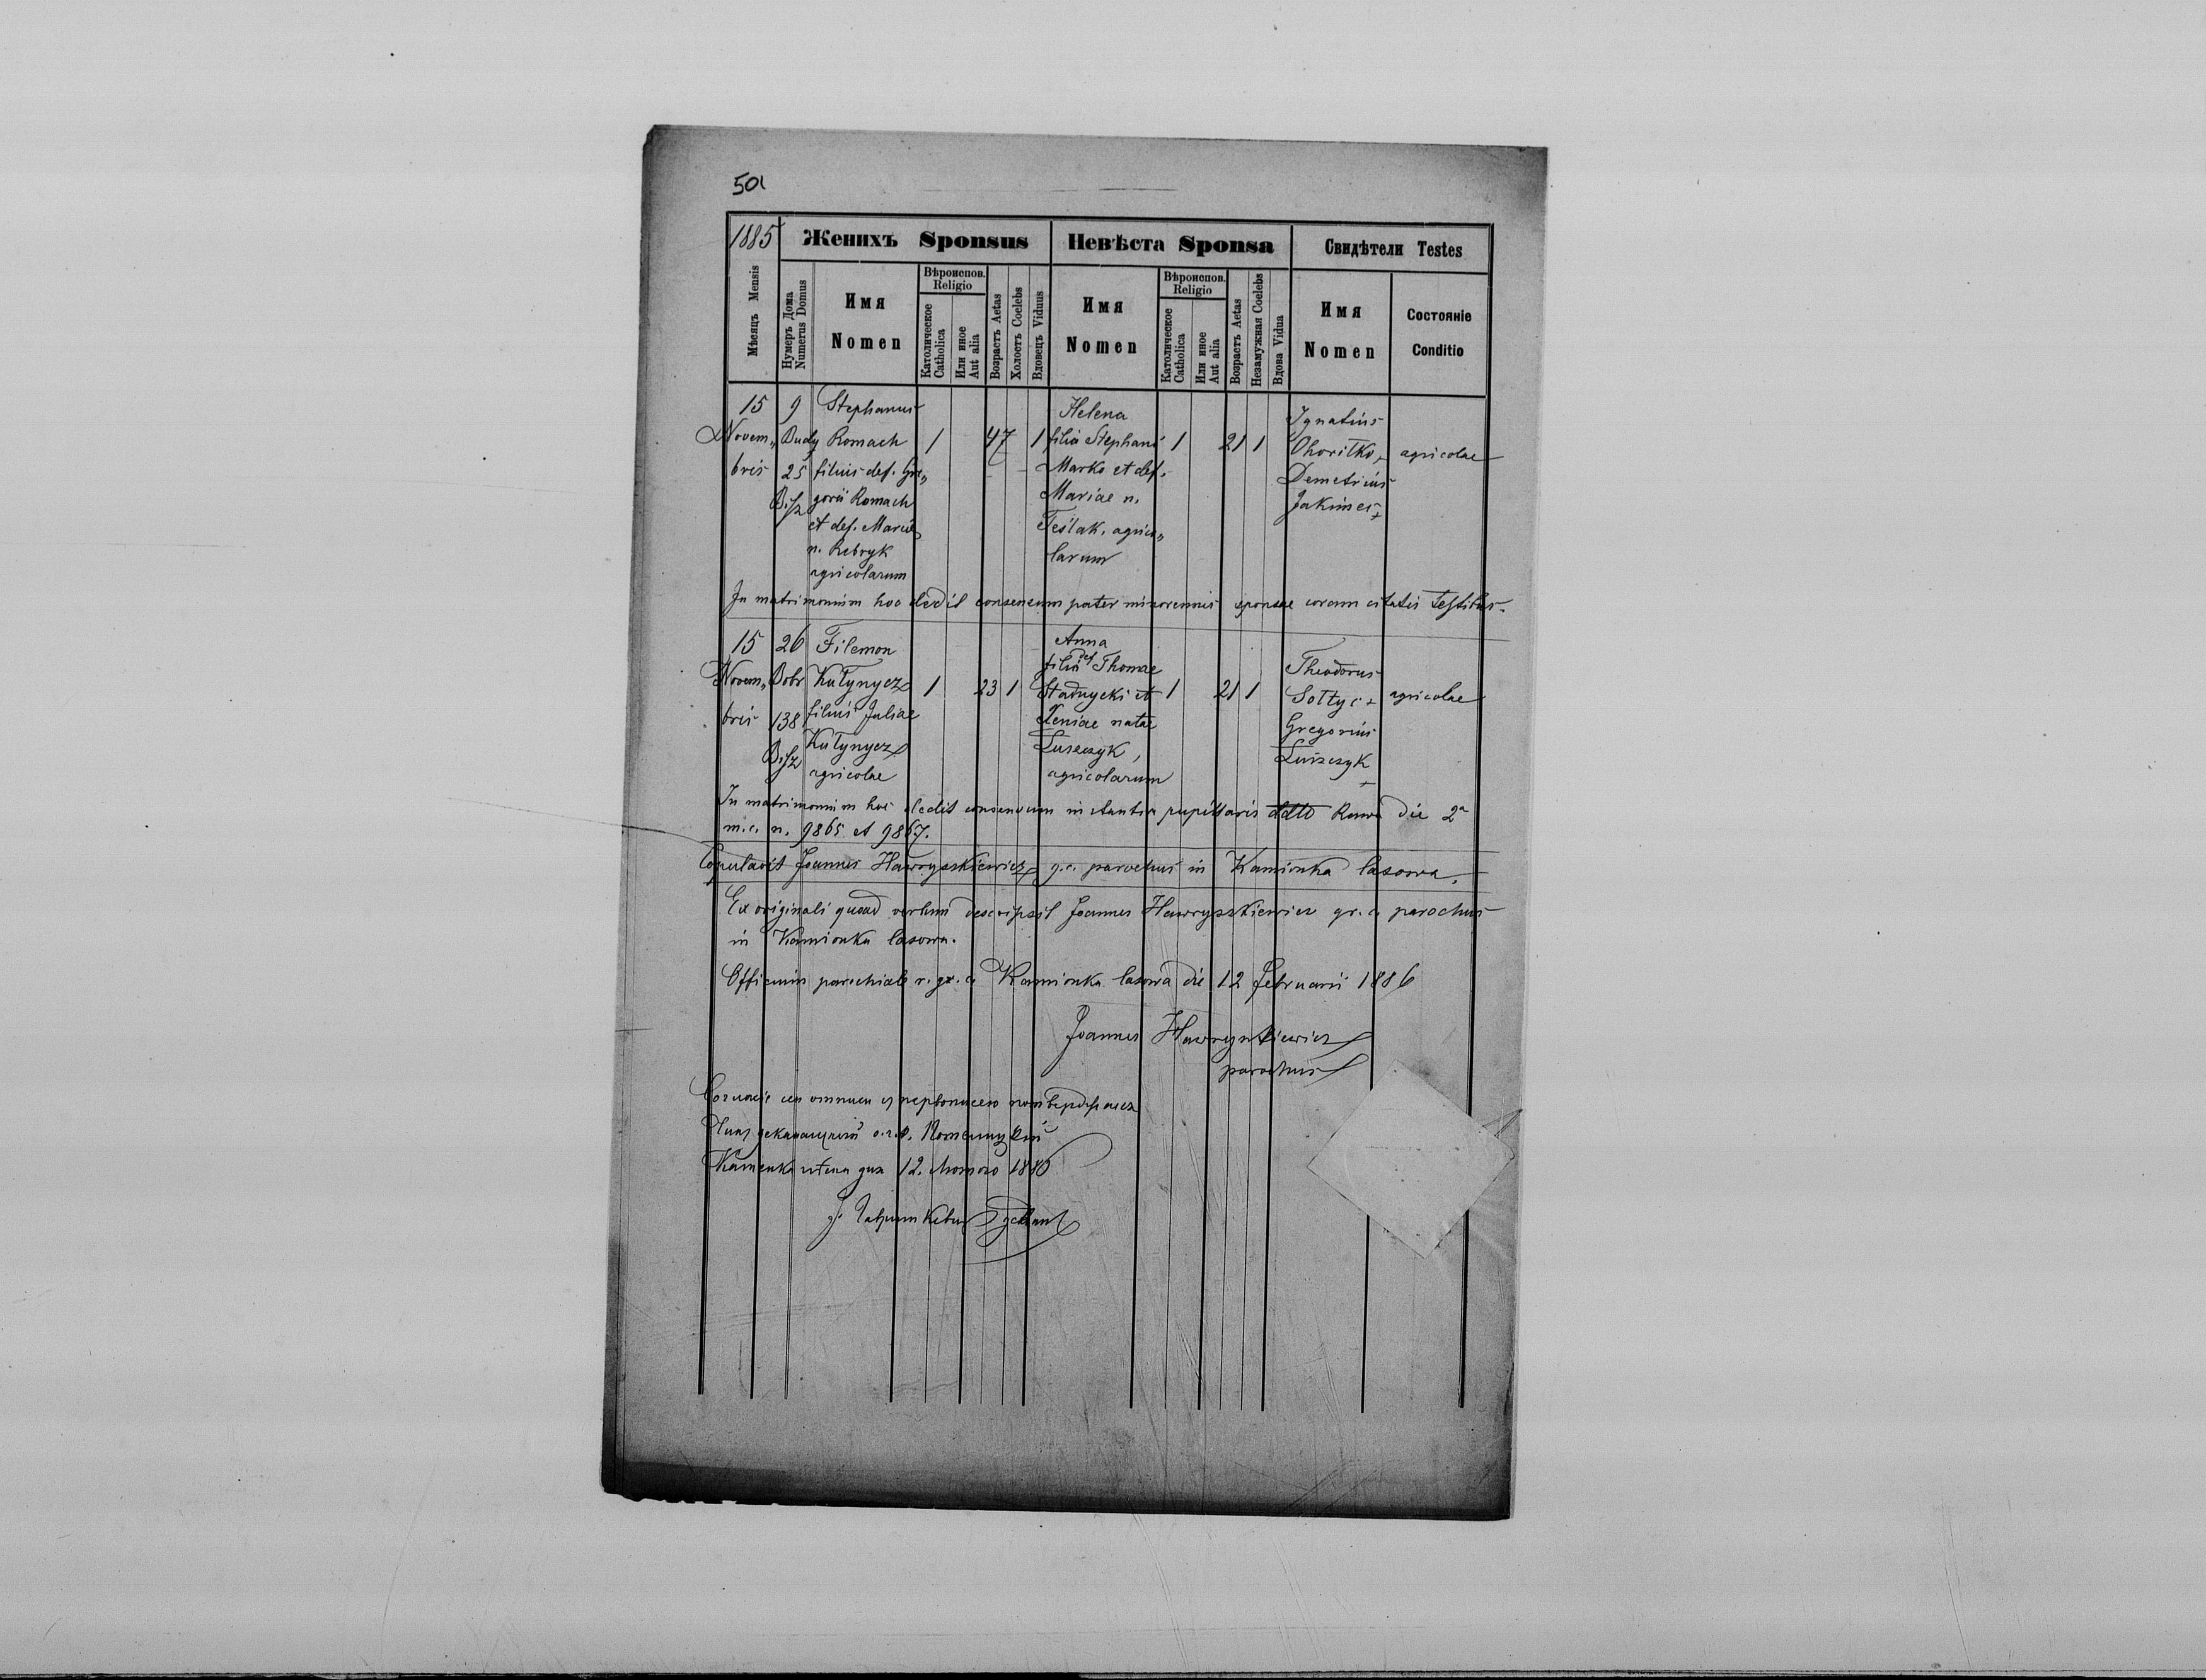 501
1885 Женихъ Sponsus Невѣста Sponsa Свидѣтели Testes
Мѣсяцъ Mensis
Нумеръ Дома Numerus Domus
Имя Nomen
Вѣроиспов. Religio
Католическое Catholica
Или иное Aut alia
Возрастъ Aetas
Холостъ Coelebs
Вдовецъ Viduus
Имя Nomen
Вѣроиспов. Religio
Католическое Catholica
Или иное Aut alia
Возрастъ Aetas
Незамужная Coelebs
Вдова Vidua
Имя Nomen
Состояніе Conditio
15 9 Stephanus Helena Ignatius
Novem„ Budy Romach 1 47 1 filia Stephani 1 21 1 Ohoritko + agricolae
bris 25 filius def. Gre„ Marko et def. Demetrius
Bisz gorii Romach Mariae n. Jakimes +
et def. Mariae Teślak, agrico„
n. Rebryk larum
agricolarum
In matrimonium hoc dedit consensum pater minorennis sponsae coram citatis testibus.
15 26 Filemon Anna
Novem„ Dobr Kułynycz 1 23 1 filia def Thomae 1 21 1 Theodorus
bris 138 filius Juliae Stadnycki et Sołtys + agricolae
Bisz Kułynycz Xeniae natae Gregorius
agricolae Łuszczyk, Łuszczyk
agricolarum +
In matrimonium hoc dedit consensum instantia pupillaris ddto Rawa die 2a
m.c. n. 9865 et 9867.
Copulavit Joannes Hawryszkiewicz g.c. parochus in Kamionka lasowa.
Ex originali quoad verbum descripsit Joannes Hawryszkiewicz gr. c. parochus
in Kamionka lasowa.
Officium parochiale r. gr. c. Kamionka lasowa die 12 Februarii 1886
Joannes Hawryszkiewicz
parochus
12. Лютого 1886